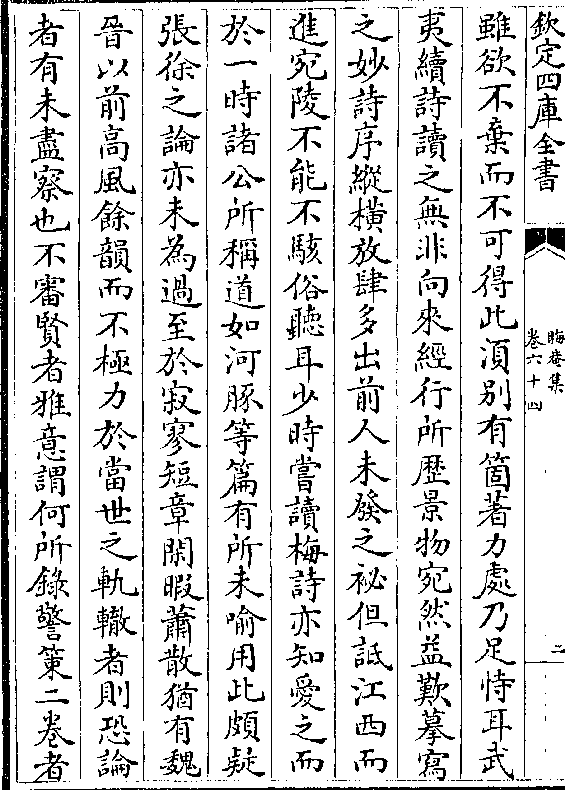 欽定四庫全書
晦庵集
卷六十四
二
雖欲不棄而不可得此湏别有箇著力處乃足恃耳武
夷續詩讀之無非向來經行所歴景物宛然益歎摹寫
之妙詩序縱橫放肆多出前人未發之祕但詆江西而
進宛陵不能不駭俗聽耳少時嘗讀梅詩亦知愛之而
於一時諸公所稱道如河豚等篇有所未喻用此頗疑
張徐之論亦未為過至於寂寥短章閑暇蕭散猶有魏
晉以前高風餘韻而不極力於當世之軌轍者則恐論
者有未盡察也不審賢者雅意謂何所錄警策二卷者